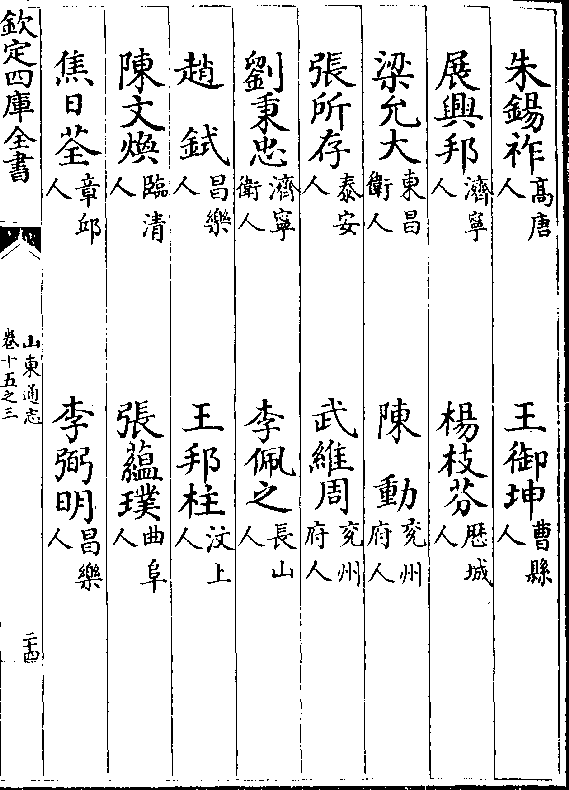 朱錫祚高唐人　王御坤曹縣人
展興邦濟寧人　楊枝芬歷城人
梁允大東昌衛人　陳動兖州府人
張所存泰安人　武維周兖州府人
劉秉忠濟寧衛人　李佩之長山人
趙鉽昌樂人　王邦柱汶上人
陳文煥臨清人　張蘊璞曲阜人
焦日荃章邱人　李弼明昌樂人
欽定四庫全書
山東通志
卷十五之三
二十四